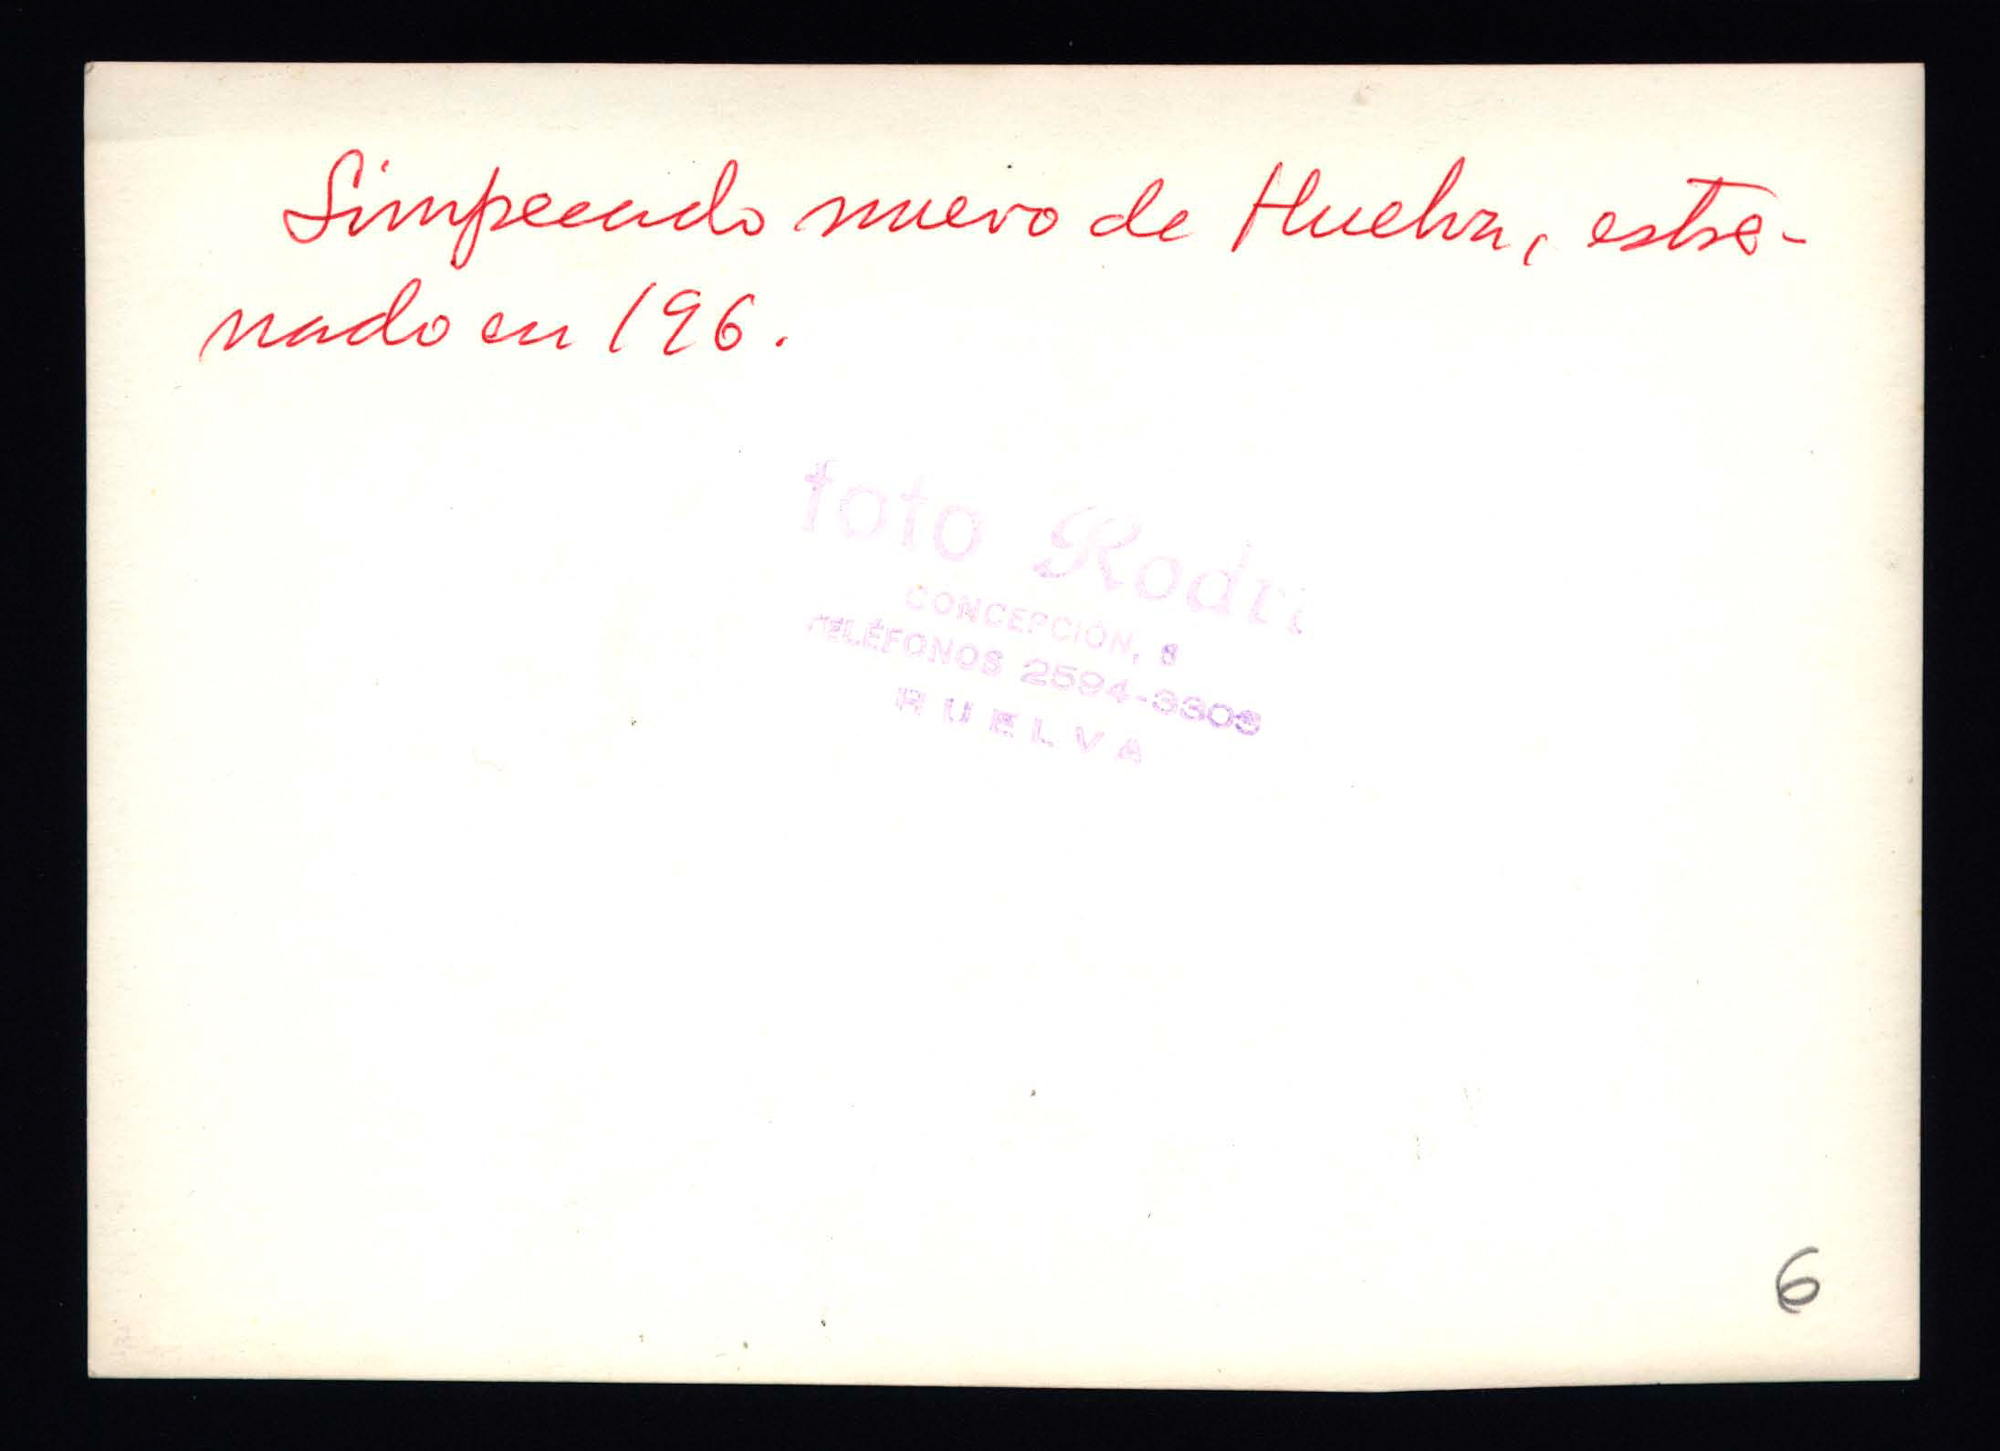 Simpecado nuevo de Huelva, estre-
nado en 196 .
foto Rodri
CONCEPCIÓN, 8
TELÉFONOS 2594-3303
HUELVA
6